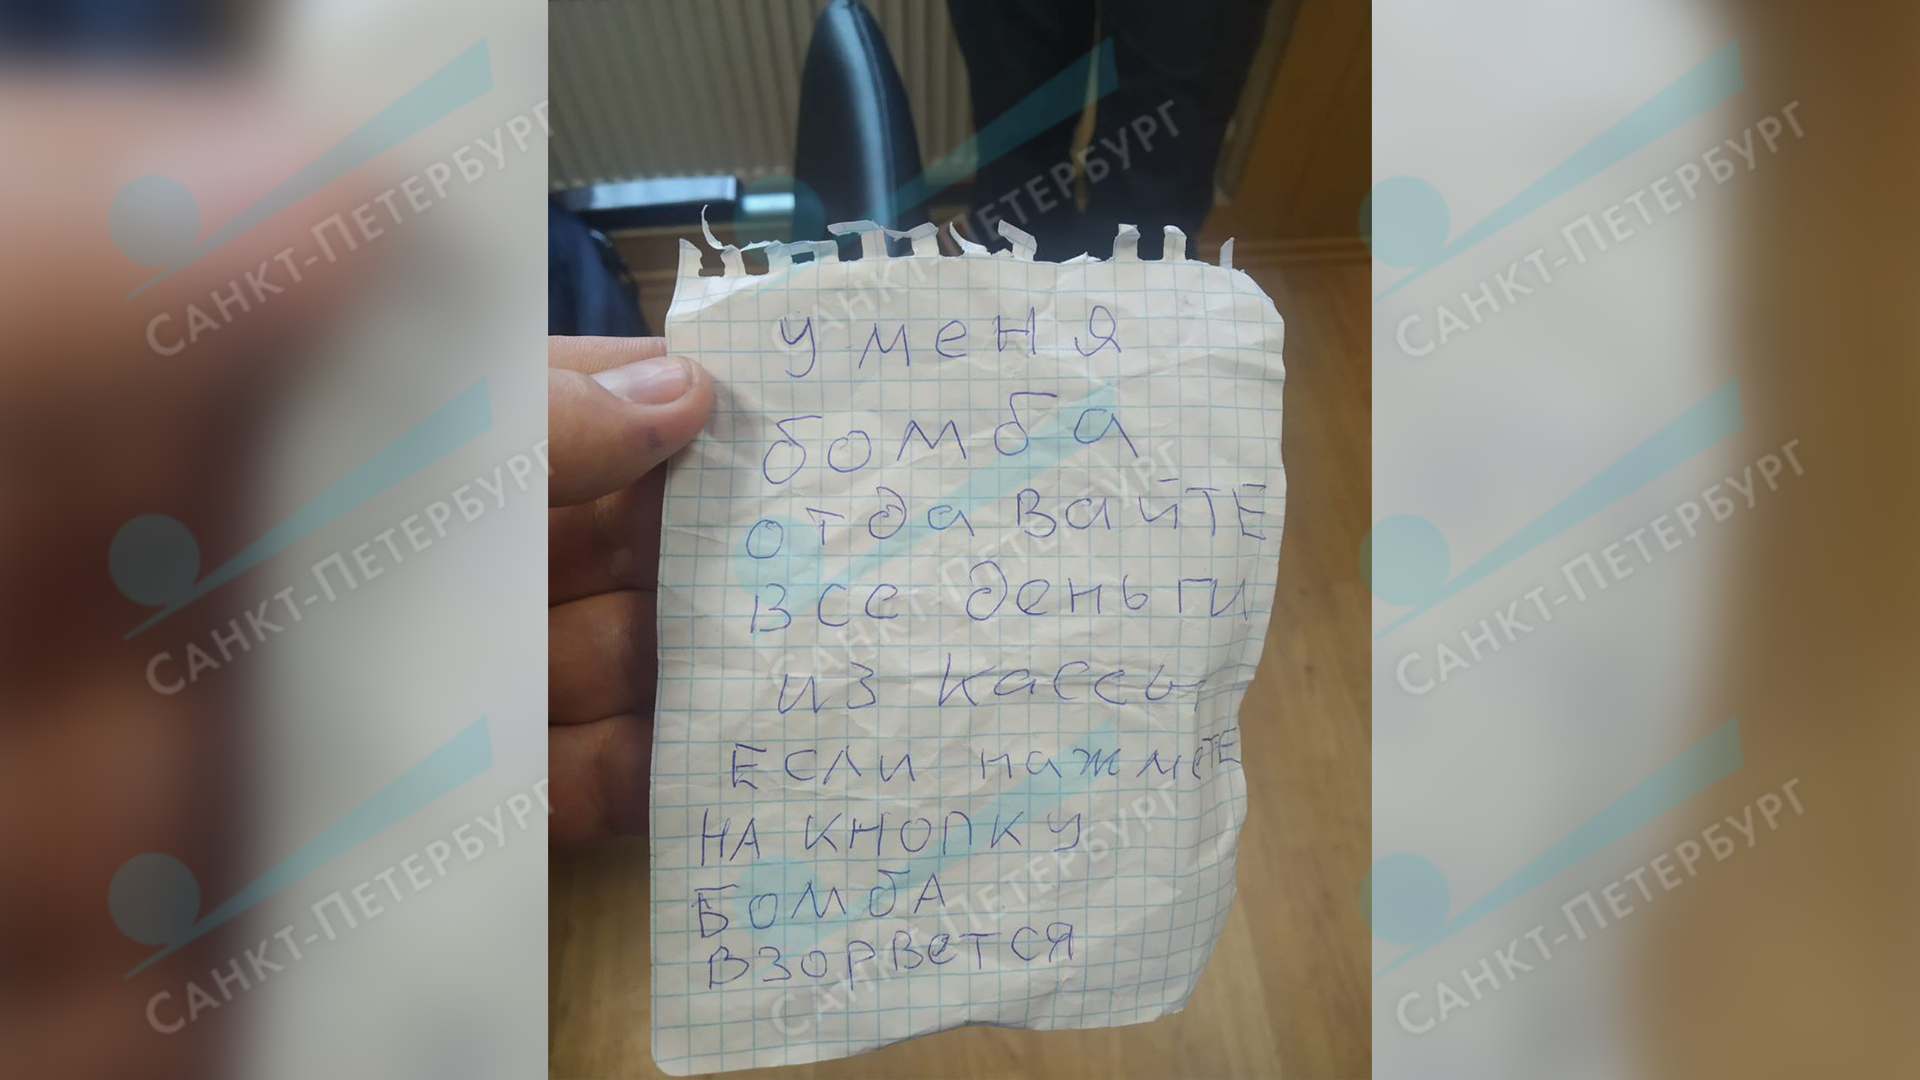 у меня
бомба
отдавайТЕ
все деньги
из кассы
Если нажмеТЕ
НА КНОПКУ
БомбА
взорвется
САНКТ-ПЕТЕРБУРГ
САНКТ-ПЕТЕРБУРГ
САНКТ-ПЕТЕРБУРГ
САНКТ-ПЕТЕРБУРГ
САНКТ-ПЕТЕРБУРГ
САНКТ-ПЕТЕРБУРГ
САНКТ-ПЕТЕРБУРГ
САНКТ-ПЕТЕРБУРГ
САНКТ-ПЕТЕРБУРГ